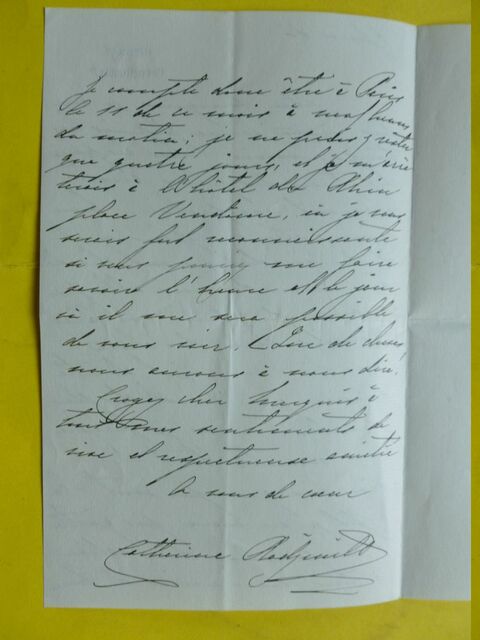 Je compte donc être à Paris
le 11 de ce mois à neuf heures
du matin; je ne puis y rester
que quatre jours, et je m'arrê
terais à l'hôtel du Rhin
place Vendôme, où je vous
serais fort reconnaissante
si vous me faire
savoir l'heure et le jour
où il me sera possible
de vous voir. Que de choses
nous aurons à nous dire.
Croyez cher à
tous mes sentiments de
vive et respectueuse amitié
A vous de cœur
Catherine Radziwill